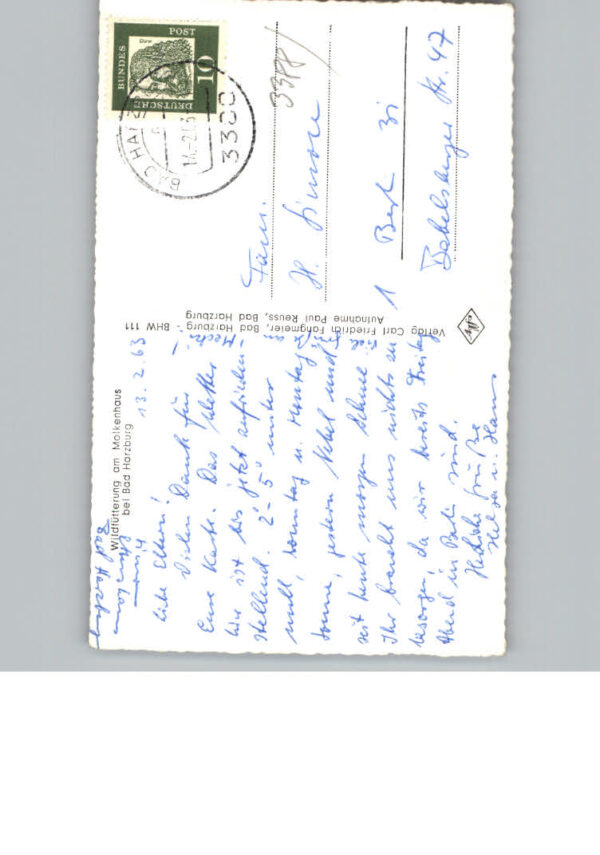 Wildfütterung am Molkenhaus
bei Bad Harzburg
Bad Harzburg
13.2.63
Liebe Eltern!
Vielen Dank für
Eure Karte. Das Wetter
hier ist bis jetzt zufrieden-
stellend. 2-5° unter
null, Sonntag u. Montag
Sonne, gestern Nebel und
seit heute morgen Schnee
Ihr braucht uns nichts zu
besorgen, da wir bereits Freitag
Abend in Berlin sind.
Herzliche Grüße
u. Hans
Verlag Carl Friedrich Fangmeier, Bad Harzburg - BHW 111
Aufnahme Paul Reuss, Bad Harzburg
Agfa
DEUTSCHE
BUNDES
POST
10
BAD HARZ
3388
3388
Fam.
H. Simon
1 Berlin 31
Babelsberger Str. 47